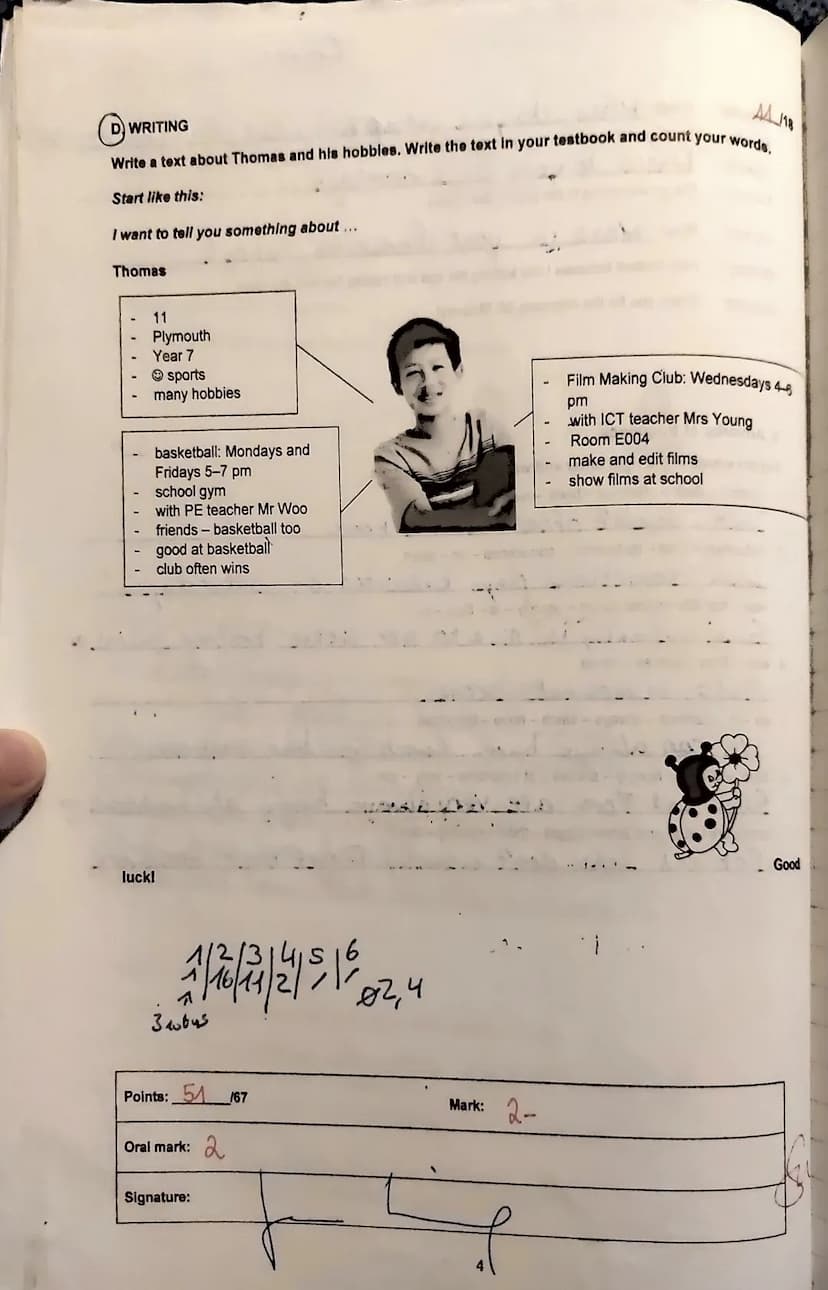 11/18
D) WRITING
Write a text about Thomas and his hobbies. Write the text in your testbook and count your words.
Start like this:
I want to tell you something about ...
Thomas
- 11
- Plymouth
- Year 7
- ☺ sports
- many hobbies
- Film Making Club: Wednesdays 4–6
pm
- with ICT teacher Mrs Young
- Room E004
- make and edit films
- show films at school
- basketball: Mondays and
Fridays 5–7 pm
- school gym
- with PE teacher Mr Woo
- friends – basketball too
- good at basketball
- club often wins
Good
luck!
1/2/3/4/5/6
1/16/11/2/-/-
ø2,4
Points: 51 /67
Mark: 2-
Oral mark: 2
Signature:
4